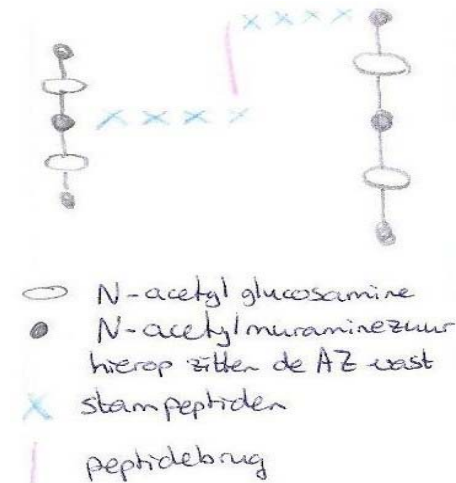 N-acetylglucosamine
N-acetylmuraminezuur
hierop zitten de AZ vast
stampeptiden
peptidebrug